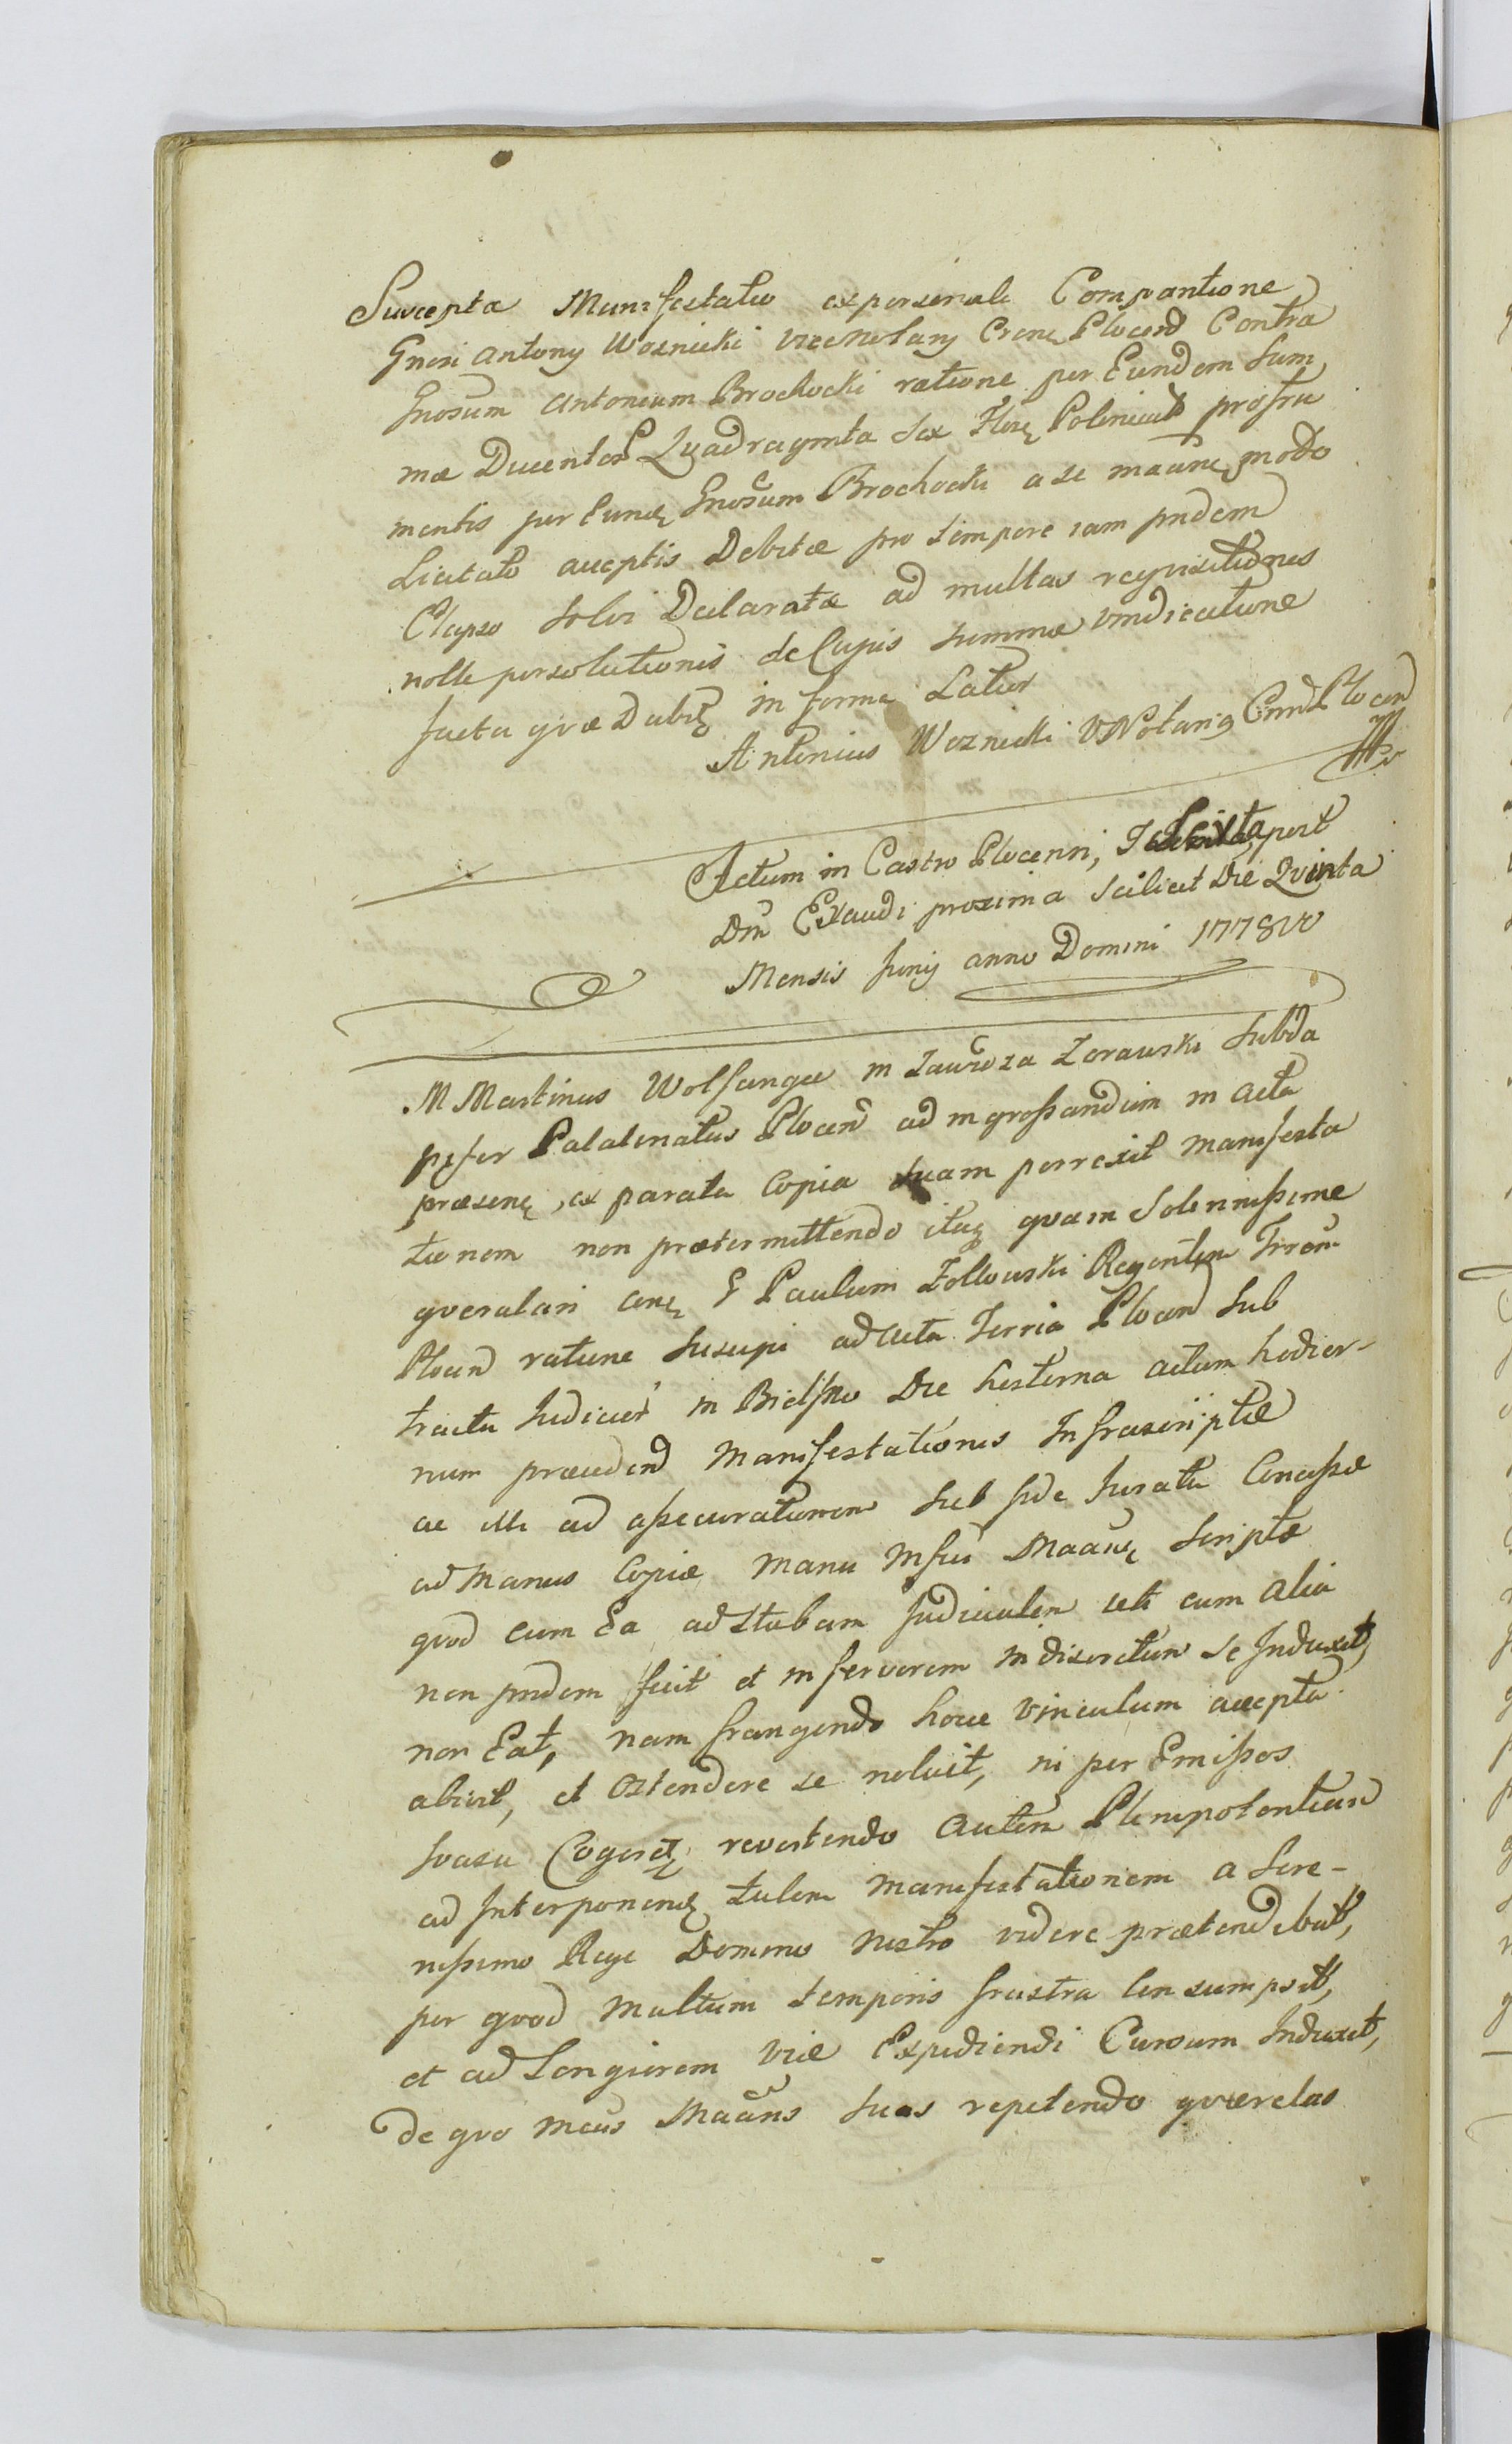 Suscepta Manifestatio ex personali Comparitione
Gnosi Antony Woznicki vice Notary Crenę Plocen Contra
Gnosum Antonium Brochocki ratione per Eundem Sum
mæ Ducentor Quadraginta Sex Florę Polonical pro fru
mentis per Eundę Gnosum Brochocki a se maanę modo
Licitato acceptis Debitæ pro tempore iam pridem
Elapso solvi Declaratæ ad multas reqvisitiones
nolle persolutionis de Cujus summæ vindicatione
facta qvæ Dabitę in forma Latior
Antonius Woznicki VNotariq Crend Plocen
Actum in Castro Plocensi, Sexta post
Dm̃ Exaudi proxima Scilicet Die Qvinta
Mensis Juny anno Domini 1778vo
M Martinus Wolfangu in Zaurza Zorawski Subda
pifer Palatinatus Plocen ad ingrossandum in Acta
præsenę, ex parata Copia suam porrexit manifesta
tionem non prætermittendo itaq qvam Solennissime
qverulari conę G Paulum Zollowski Regentem Trrem
Plocen ratione Suscipi ad Acta Terria Plocen Sub
tractu Judicior in Bielsko Die hesterna actum hodier-
num præceden Manifestationis Infrascriptæ
ac illi ad assecurationem Sub fide Jurata Concessæ
ad Manus Copiæ manu Msui Maanę Scriptæ
qvod cum Ea ad Stubam Judicialem uti cum alia
non pridem fuit et in fervorem indiscretum se Induxit,
non Eat, nam frangendo hocce Vinculum accepta
abivit, et ostendere se noluit, ni per Emissos
svasu Cogeretę revertendo Autem Plenipotentiam
ad Interponendę talem manifestationem a Sere-
nissimo Rege Domino nostro videre prætendebat,
per qvod multum temporis frustra Consumpsit,
et ad Longiorem Viæ Expediendi Cursum Induxit,
De qvo meus Maans suas repetendo qverelas